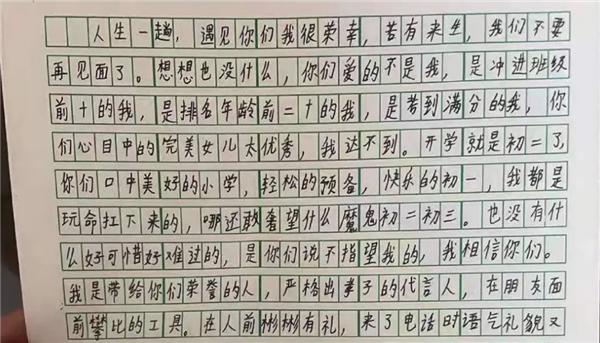 人生一趟，遇见你们我很荣幸，若有来生，我们不要
再见面了。想想也没什么，你们爱的不是我，是冲进班级
前十的我，是排名年龄前二十的我，是考到满分的我，你
们心目中的完美女儿太优秀，我达不到。开学就是初二了，
你们口中美好的小学，轻松的预备，快乐的初一，我都是
玩命扛下来的，哪还敢奢望什么魔鬼初二初三。也没有什
么好可惜好难过的，是你们说不指望我的，我相信你们。
我是带给你们荣誉的人，严格出孝子的代言人，在朋友面
前攀比的工具。在人前彬彬有礼，来了电话时语气礼貌又